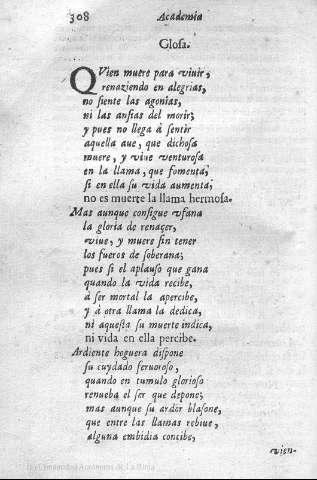 308 Academia
Glosa.
QVien muere para viuir,
renaziendo en alegrias,
no siente las agonias,
ni las ansias del morir;
y pues no llega à sentir
aquella aue, que dichosa
muere, y viue venturosa
en la llama, que fomenta,
si en ella su vida aumenta,
no es muerte la llama hermosa.
Mas aunque consigue vfana
la gloria de renaçer,
viue, y muere sin tener
los fueros de soberana;
pues si el aplauso que gana
quando la vida recibe,
à ser mortal la apercibe,
y à otra llama la dedica,
ni aquesta su muerte indica,
ni vida en ella percibe.
Ardiente hoguera dispone
su cuydado feruoroso,
quando en tumulo glorioso
renueba el ser que depone;
mas aunque su ardor blasone,
que entre las llamas rebiue,
alguna embidia concibe,
vien-
(c) Comunidad Autónoma de La Rioja